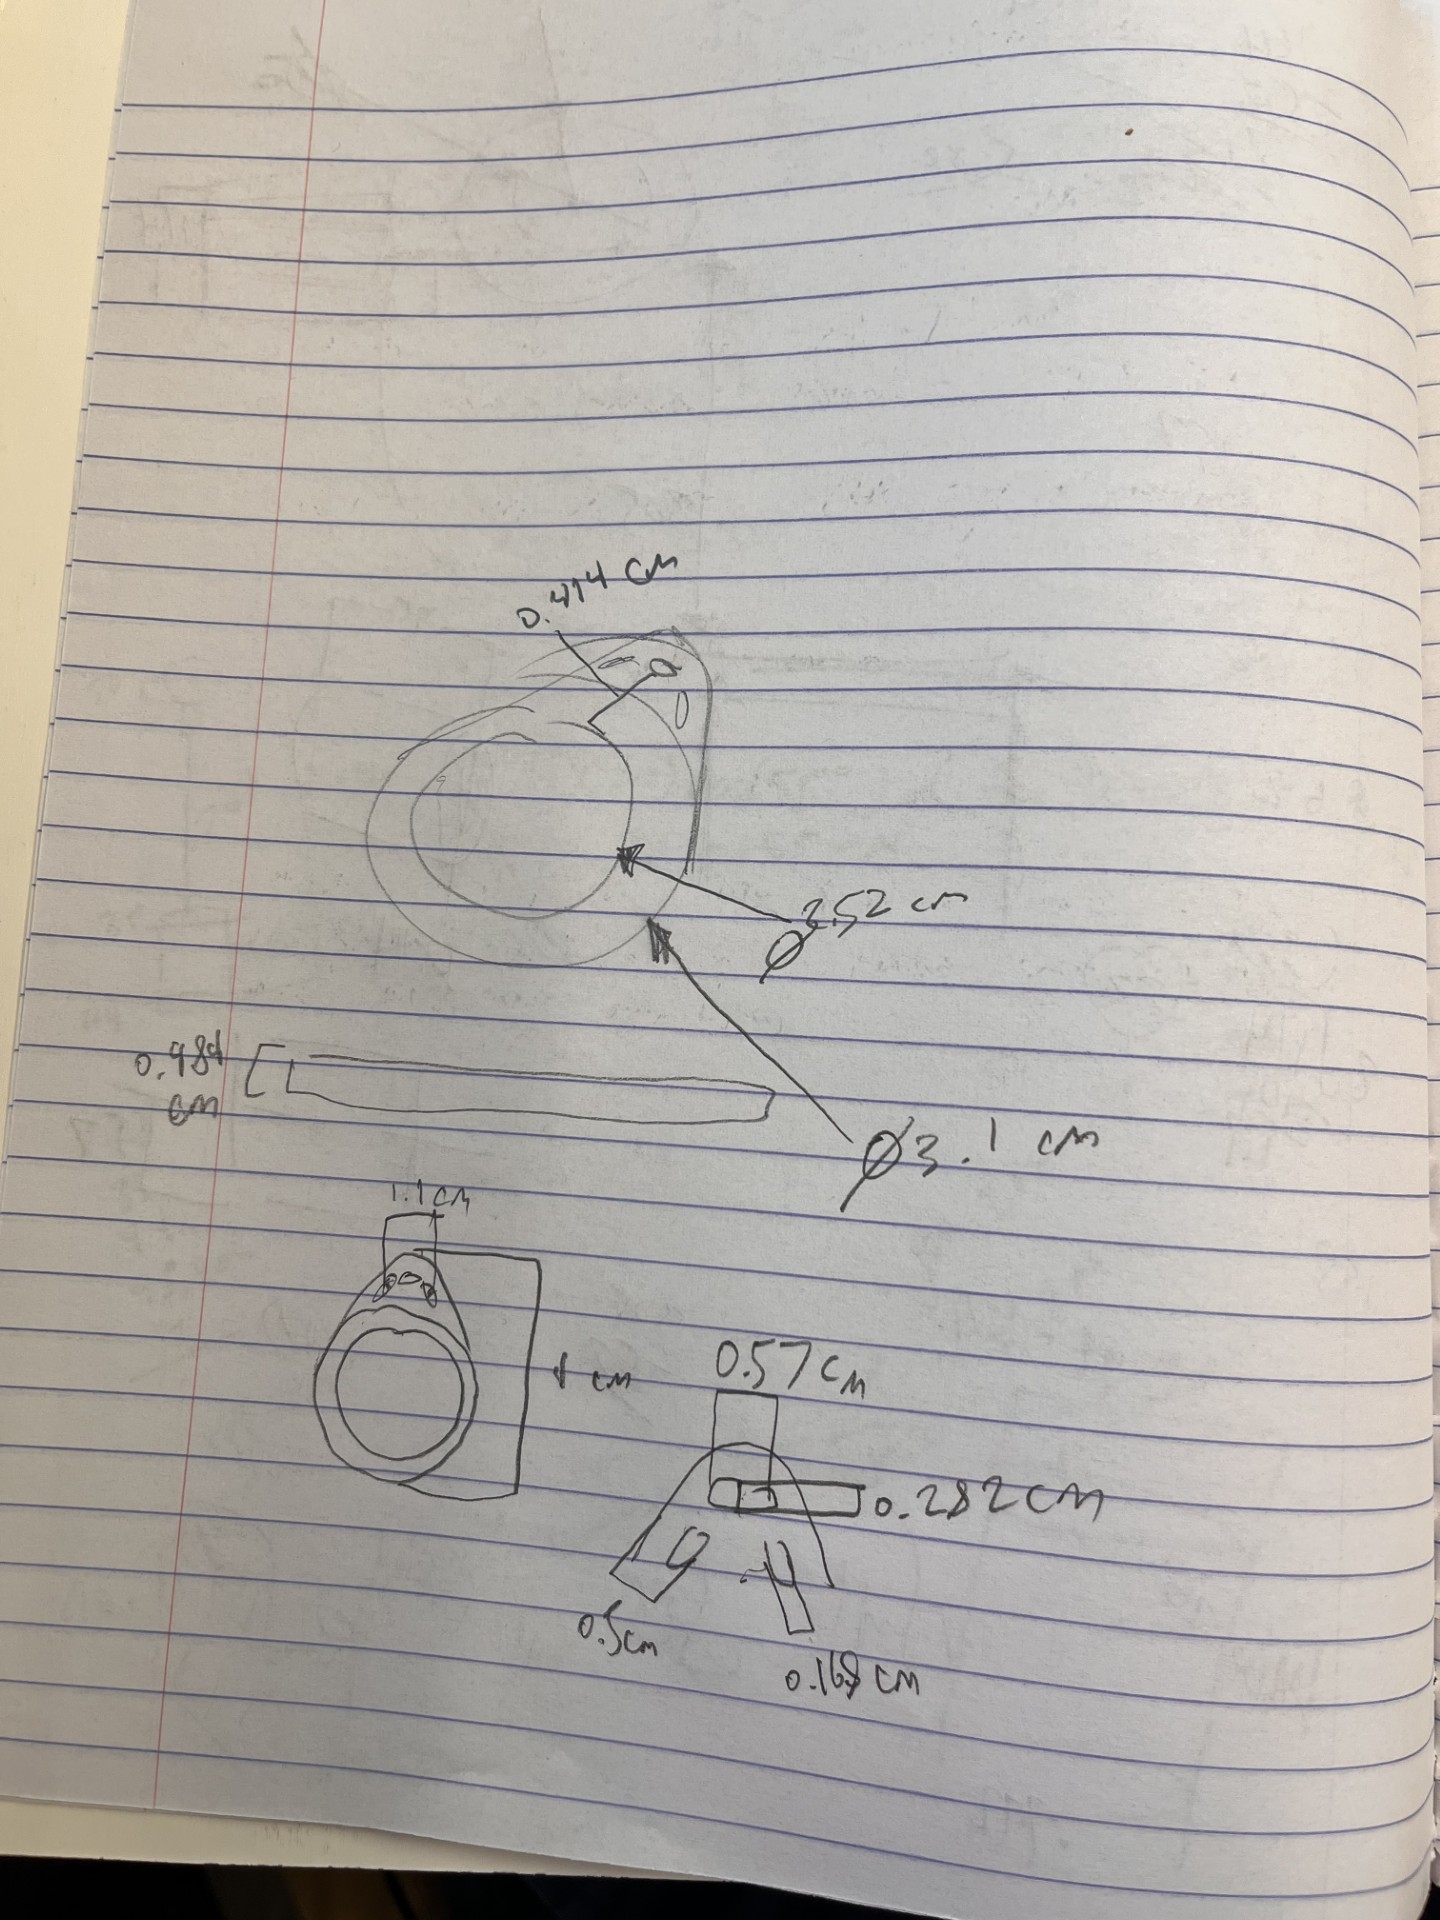 0.474 cm
Ø2.52 cm
0.984
cm
Ø3.1 cm
1.1 cm
cm
0.57 cm
0.282 cm
0.5 cm
0.168 cm